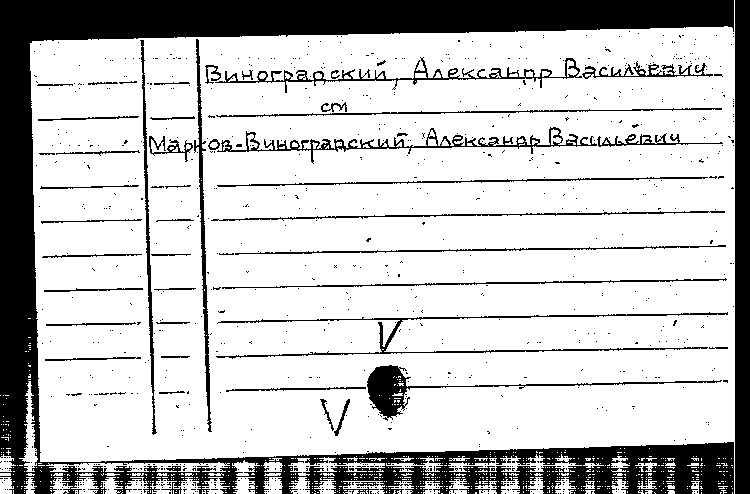 Виноградский, Александр Васильевич
см
Марков-Виноградский, Александр Васильевич
V
V